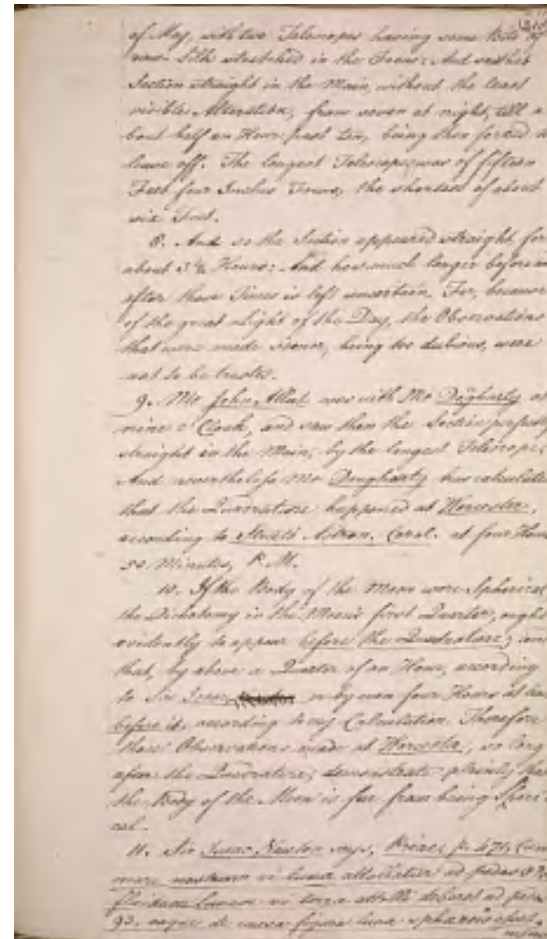 of May, with two Telescopes having some Bits of
raw Silk stretched in the Focus: And
Section straight in the Main, without the least
visible Alteration, from seven at night, till a
bout half an Hour past ten, being then forced to
leave off. The longest Telescope was of fifteen
Feet four Inches Focus, the shortest of about
six Feet.
8. And so the Section appeared straight, for
about 3½ Hours: And how much longer before
after those Times is left uncertain. For, because
of the great Light of the Day, the Observations
that were made sooner, being too dubious, were
not to be trusted.
9. Mr John was with Mr Dougharty at
nine o' Clock, and saw then the Section perfectly
straight in the Main, by the longest Telescope;
And nevertheless Mr Dougharty has calculated
that the Quadrature happened at Worcester,
according to Astron. Carol. at four Hours
50 Minutes, P.M.
10. If the Body of the Moon were Spherical
the Dichotomy in the Moon's first Quarter, ought
evidently to appear before the Quadrature; and
that, by above a Quarter of an Hour, according
to Sir Isaac or by even four Hours at least
before it, according to my Calculation. Therefore
these Observations made at Worcester, so long
after the Quadrature, demonstrate plainly that
the Body of the Moon is far from being Spheri
cal.
11. Sir Isaac Newton says, p. 471,
mare nostrum vi lunæ attollitur ad pedes
fluidum lunare vi terræ attolli deberet ad pedes
93. eaque de causa figura lunæ sphærois